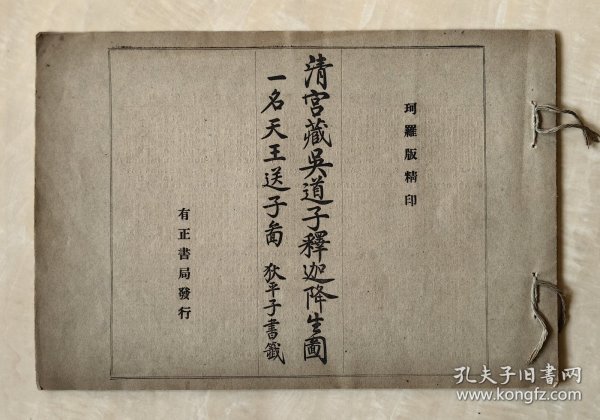 珂羅版精印
清宮藏吳道子釋迦降生圖
一名天王送子啚 狄平子書籤
有正書局發行
孔夫子旧书网
www.kongfz.com